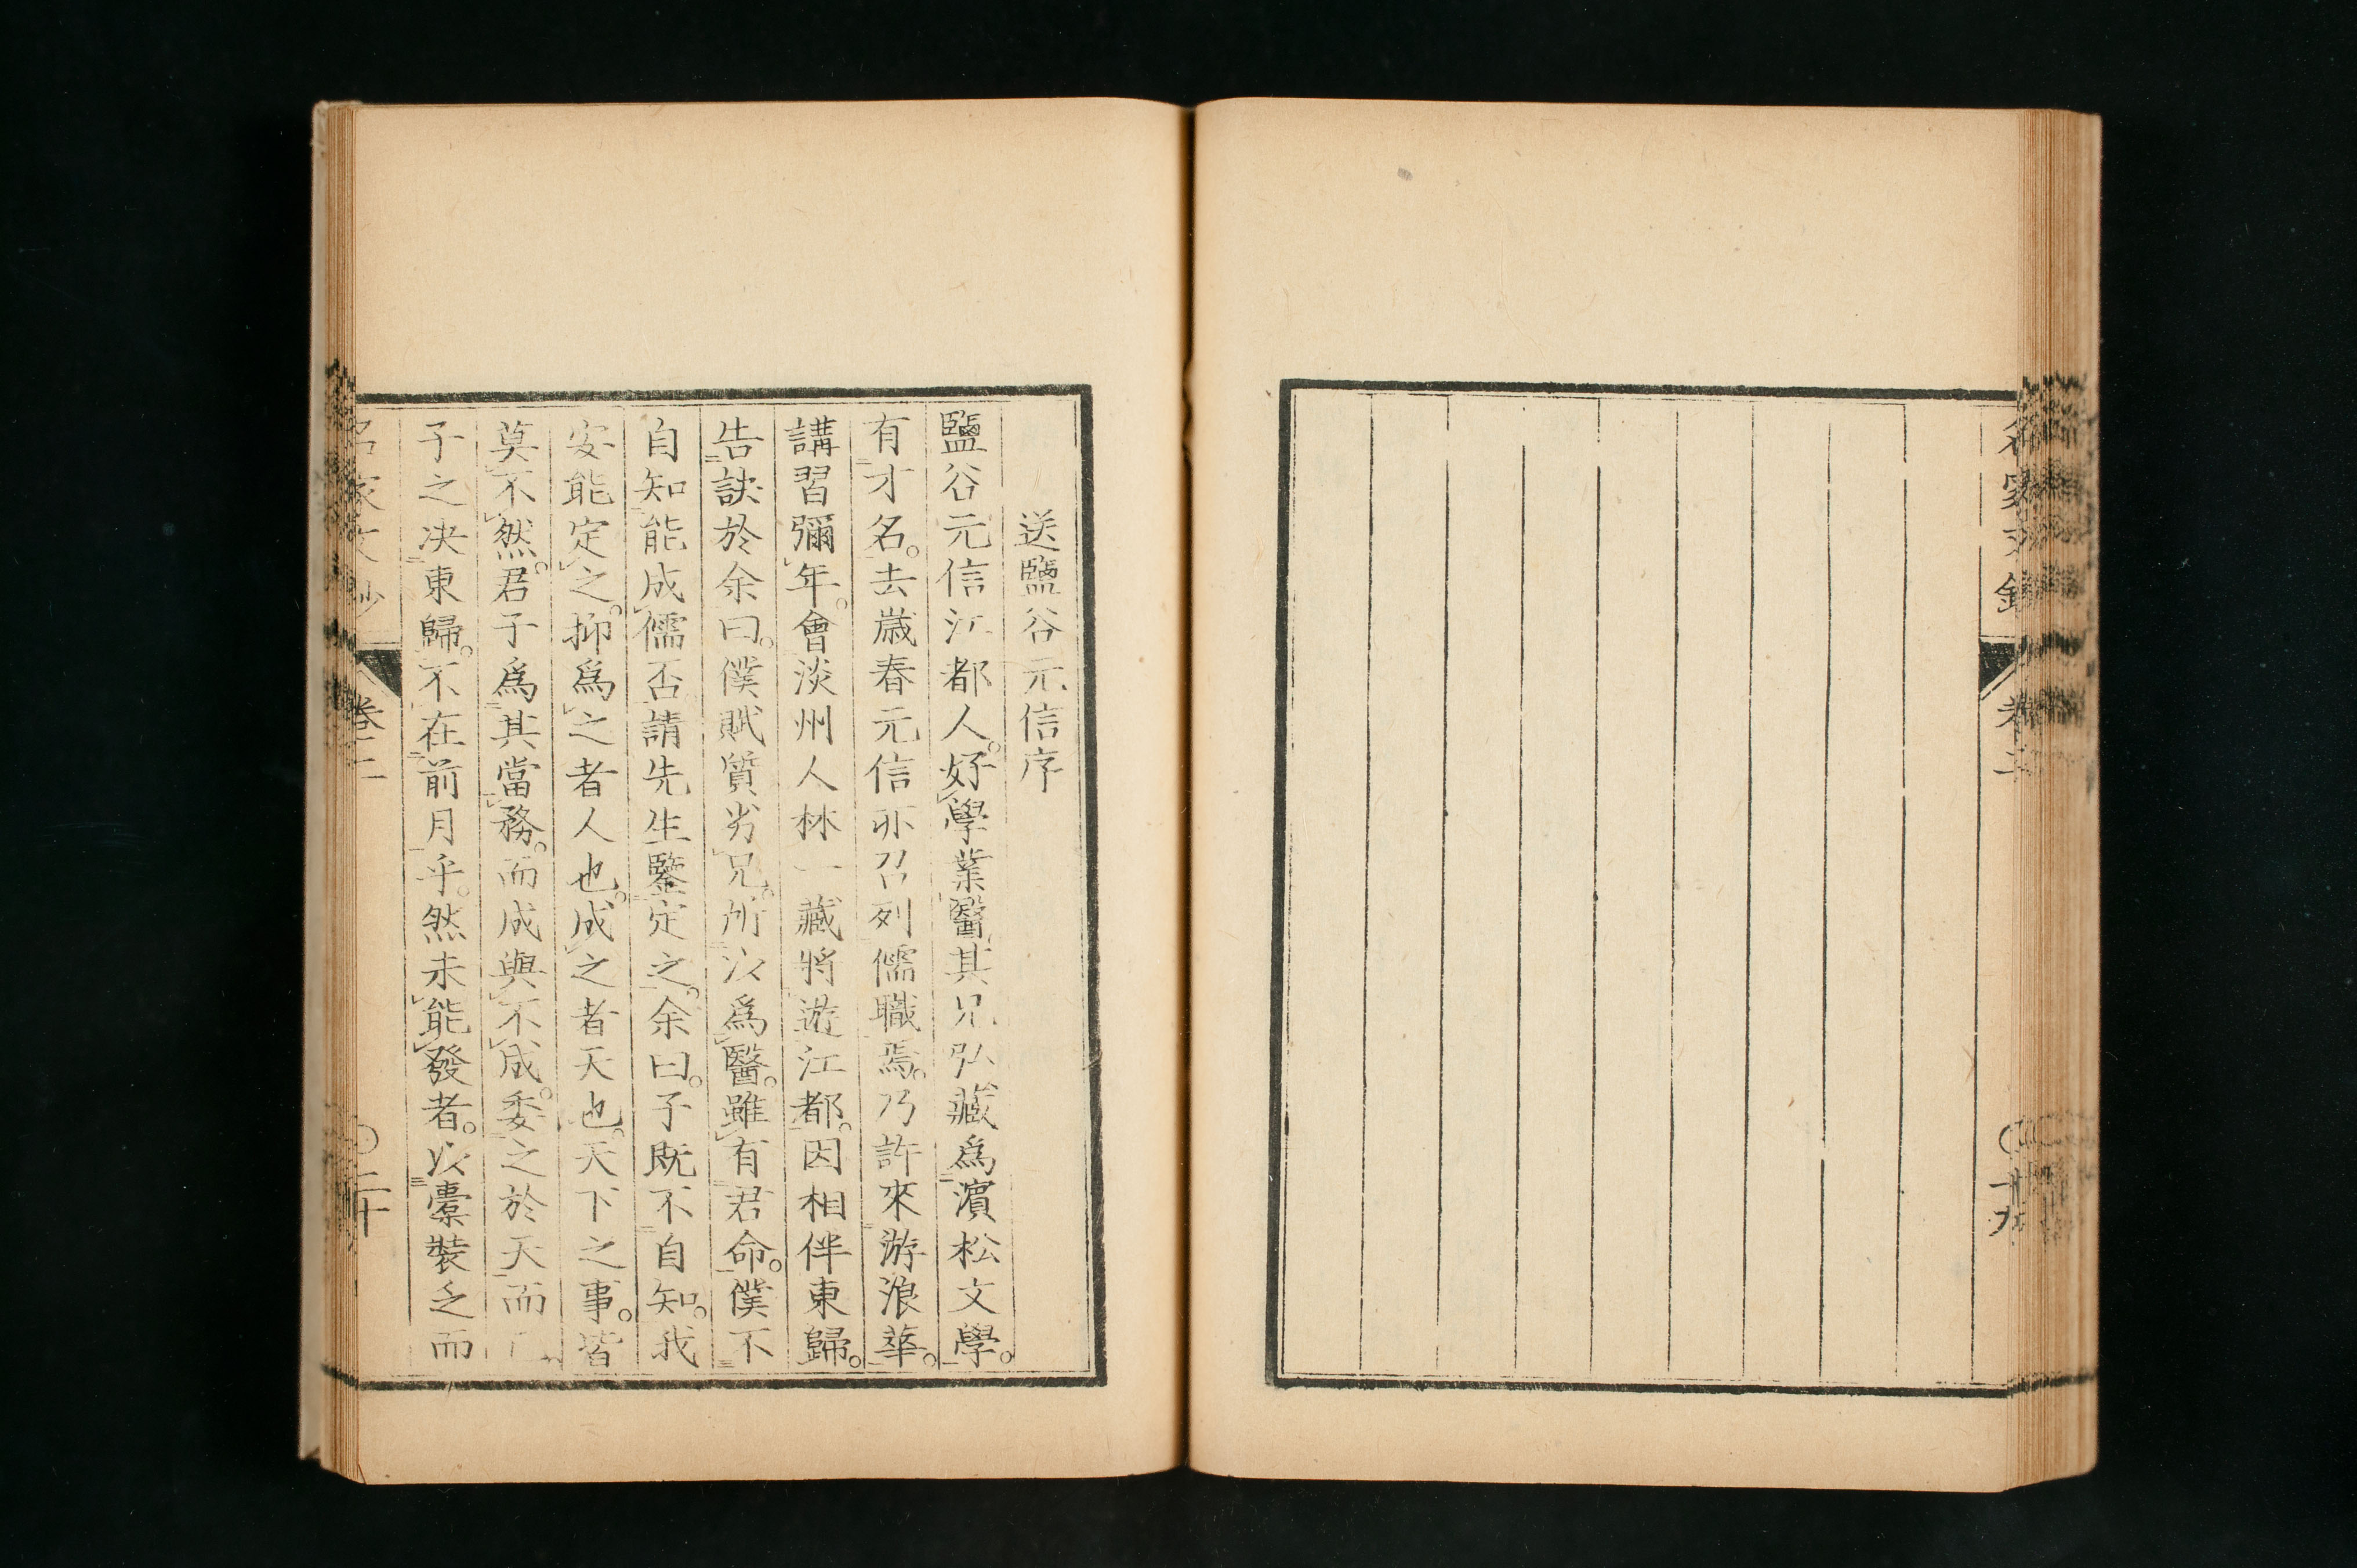 送鹽谷元信序
鹽谷元信江都人。好學業醫其兄弘藏爲濱松文學。
有才名。去歳春元信亦召列儒職焉。乃許來游浪華。
講習彌年。會淡州人林一藏將遊江都。因相伴東歸。
告訣於余曰。僕賦質劣兄。所以爲醫。雖有君命。僕不
自知能成儒否請先生鑒定之。余曰。子既不自知。我
安能定之。抑爲之者人也。成之者天也。天下之事。皆
莫不然。君子爲其當務。而成與不成。委之於天而
子之决東歸。不在前月乎。然未能發者。以囊裝乏而
名家文抄 卷二 〇二十
卷二 〇十九